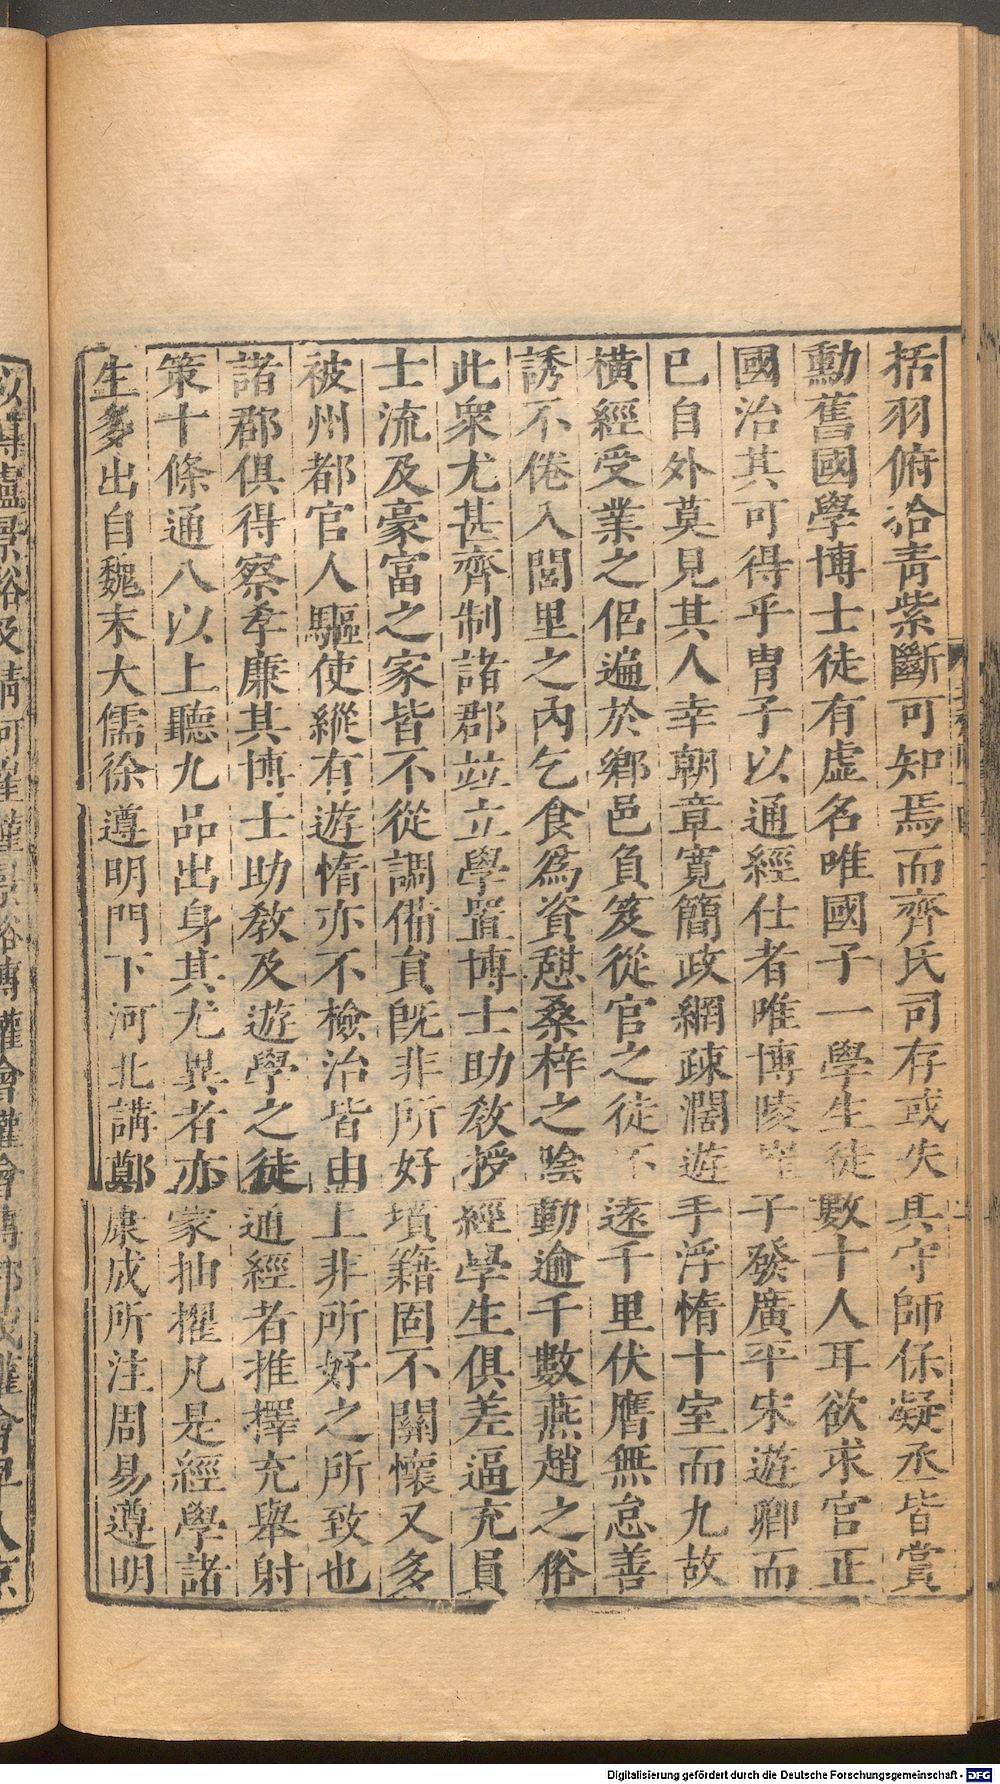 括羽俯拾青紫斷可知焉而齊氏司存或失其守師保疑丞皆賞
勳舊國學博士徒有虛名唯國子一學生徒數十人耳欲求官正
國治其可得乎胄子以通經仕者唯博陵崔子發廣平宋遊卿而
已自外莫見其人幸朝章寬簡政網疎濶遊手浮惰十室而九故
橫經受業之侶遍於鄉邑負笈從官之徒不遠千里伏膺無怠善
誘不倦入閭里之內乞食為資憩桑梓之陰動逾千數燕趙之俗
此衆尤甚齊制諸郡竝立學置博士助教授經學生俱差逼充員
士流及豪富之家皆不從調備員既非所好墳籍固不關懷又多
被州郡官人驅使縱有遊惰亦不檢治皆由上非所好之所致也
諸郡俱得察孝廉其博士助教及遊學之徒通經者推擇充舉射
策十條通八以上聽九品出身其尤異者亦蒙抽擢凡是經學諸
生多出自魏末大儒徐遵明門下河北講鄭康成所注周易遵明
Digitalisierung gefördert durch die Deutsche Forschungsgemeinschaft - DFG